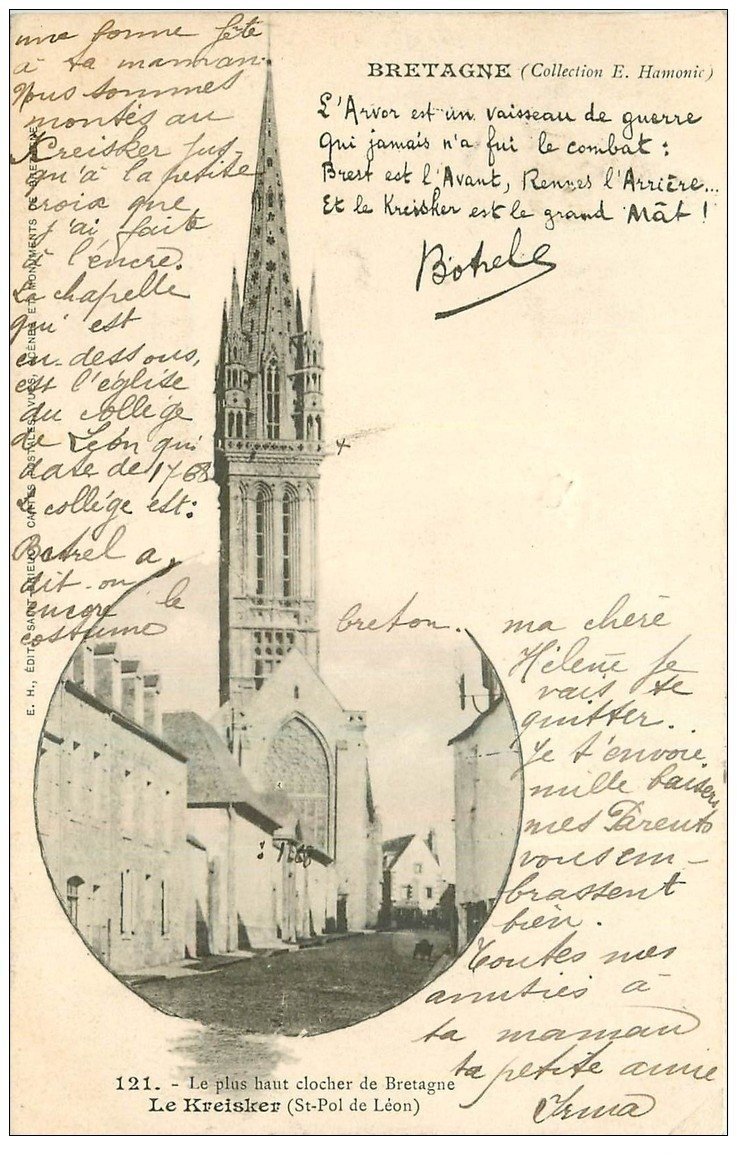 BRETAGNE (Collection E. Hamonic)
L'Arvor est un vaisseau de guerre
Qui jamais n'a fui le combat :
Brest est l'Avant, Rennes l'Arrière...
Et le Kreisker est le grand Mât !
Botrel
une bonne fête
à ta maman
Nous sommes
montés au
Kreisker jus-
qu'à la petite
croix que
j'ai faite
à l'encre.
La chapelle
qui est
en-dessous,
est l'église
du collège
de Léon qui
date de 1768
Le collège est:
Botrel a,
dit-on
encore le
costume breton.
ma chère
Hélène je
vais te
quitter.
Je t'envoie
mille baisers
mes Parents
vous em-
brassent
bien.
Toutes mes
amitiés à
ta maman
ta petite amie
Irma
E. H., ÉDIT., SAINT-BRIEUC CARTES POSTALES, VUES, SCÈNES ET MONUMENTS DE BRETAGNE
121. - Le plus haut clocher de Bretagne
Le Kreisker (St-Pol de Léon)